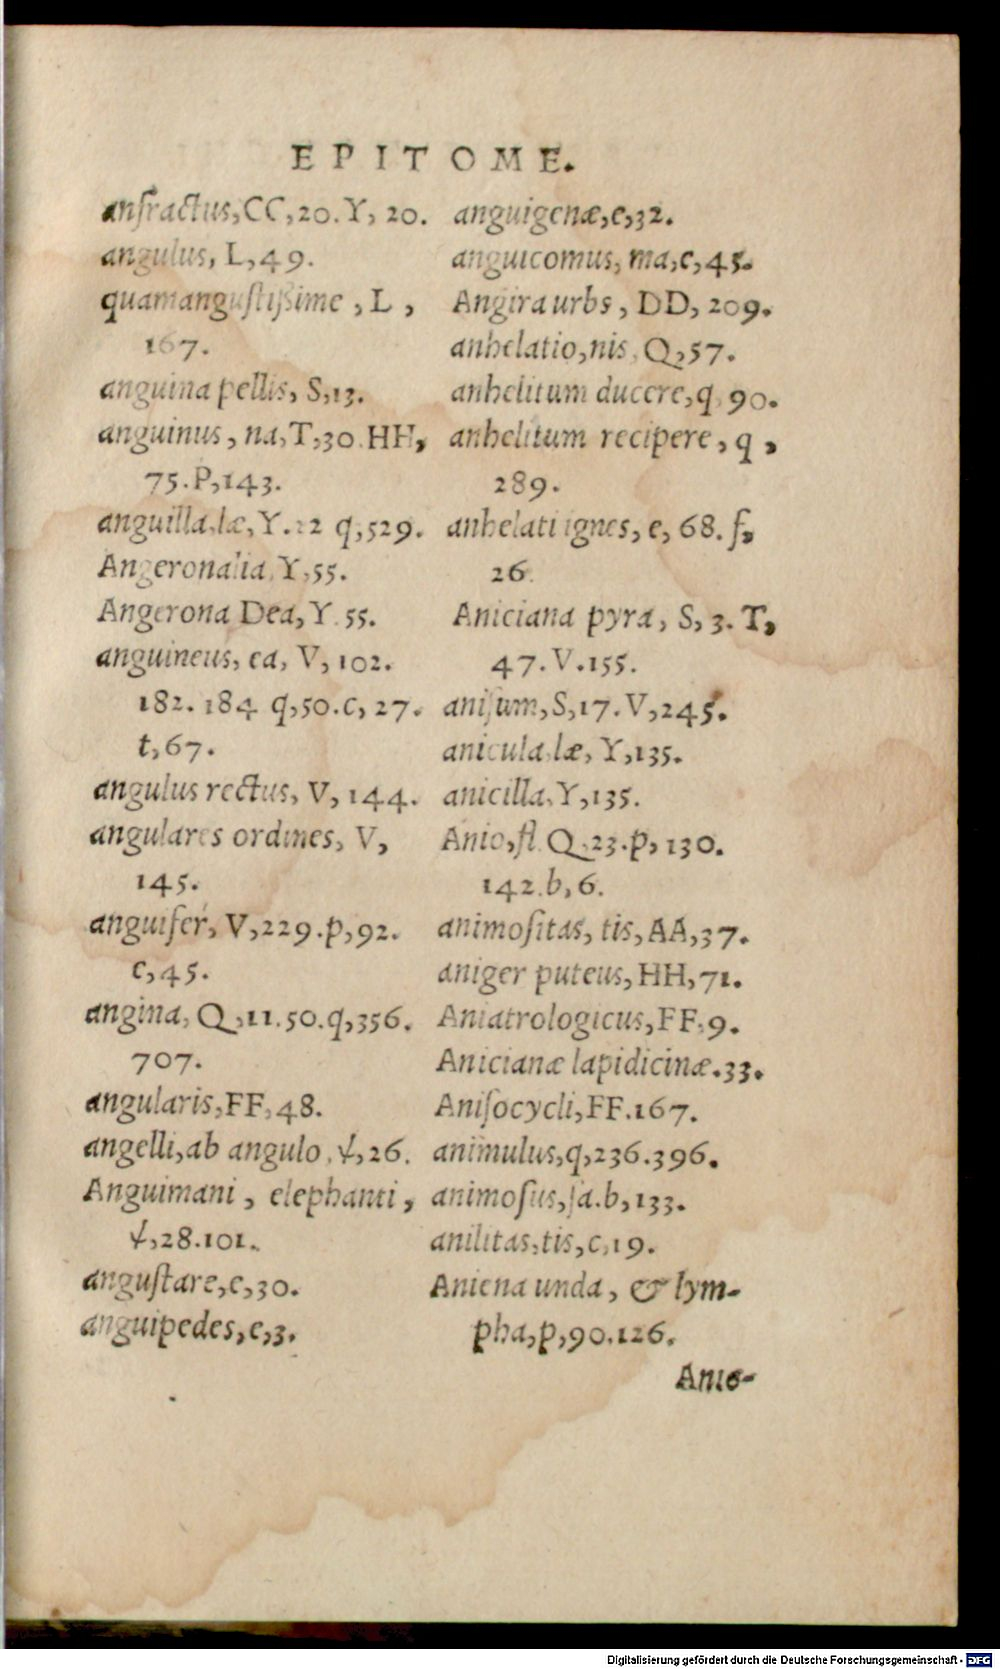 EPITOME.
anfractus, CC, 20. Y, 20.
angulus, L, 49.
quamangustißime, L,
167.
anguina pellis, S, 13.
anguinus, na, T, 30. HH,
75. P, 143.
anguilla, læ, Y. 12 q, 529.
Angeronalia, Y, 55.
Angerona Dea, Y. 55.
anguineus, ea, V, 102.
182. 184 q, 50. c, 27.
t, 67.
angulus rectus, V, 144.
angulares ordines, V,
145.
anguifer, V, 229. p, 92.
c, 45.
angina, Q, 11. 50. q, 356.
707.
angularis, FF, 48.
angelli, ab angulo, ψ, 26.
Anguimani, elephanti,
ψ, 28. 101.
angustare, c, 30.
anguipedes, e, 3.
anguigenæ, e, 32.
anguicomus, ma, c, 45.
Angira urbs, DD, 209.
anhelatio, nis, Q, 57.
anhelitum ducere, q, 90.
anhelitum recipere, q,
289.
anhelati ignes, e, 68. f,
26.
Aniciana pyra, S, 3. T,
47. V. 155.
anisum, S, 17. V, 245.
anicula, læ, Y, 135.
anicilla, Y, 135.
Anio, fl. Q, 23. p, 130.
142. b, 6.
animositas, tis, AA, 37.
aniger puteus, HH, 71.
Aniatrologicus, FF, 9.
Anicianæ lapidicinæ. 33.
Anisocycli, FF. 167.
animulus, q, 236. 396.
animosus, sa. b, 133.
anilitas, tis, c, 19.
Aniena unda, & lym-
pha, p, 90. 126.
Anio-
Digitalisierung gefördert durch die Deutsche Forschungsgemeinschaft - DFG